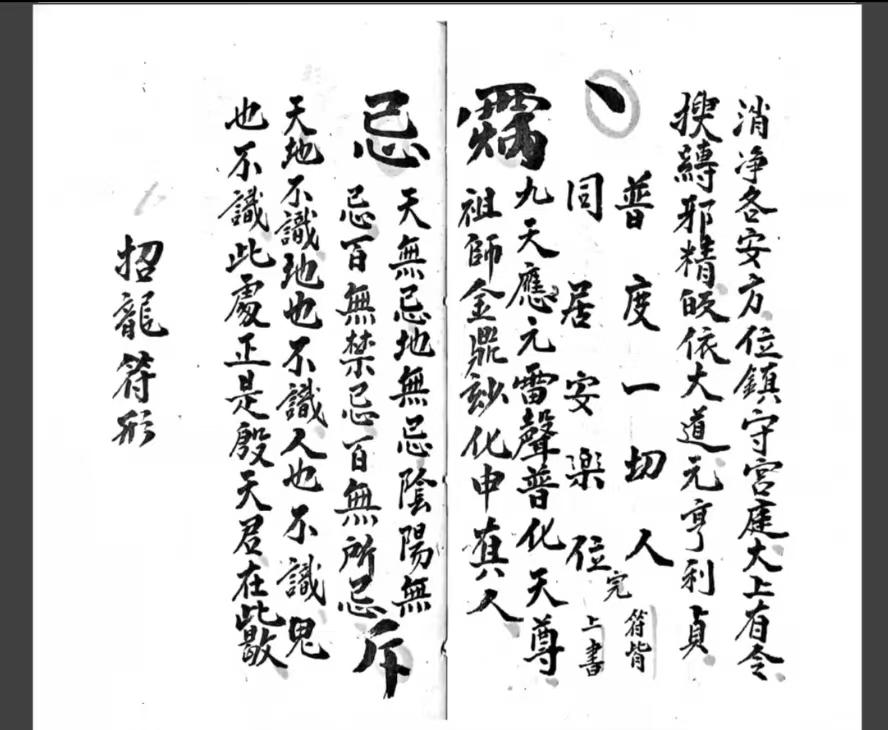 消净各安方位鎮守宮庭大上有令
搜縛邪精皈依大道元亨利貞
普度一切人
符背
、
同居安樂位完
上書
九天應元雷聲普化天尊
祖師金鼎玅化申真人
天無忌地無忌陰陽無
忌
忌百無禁忌百無所忌
斥
天地不識地也不識人也不識鬼
也不識此處正是殷天君在此歇
招龍符形